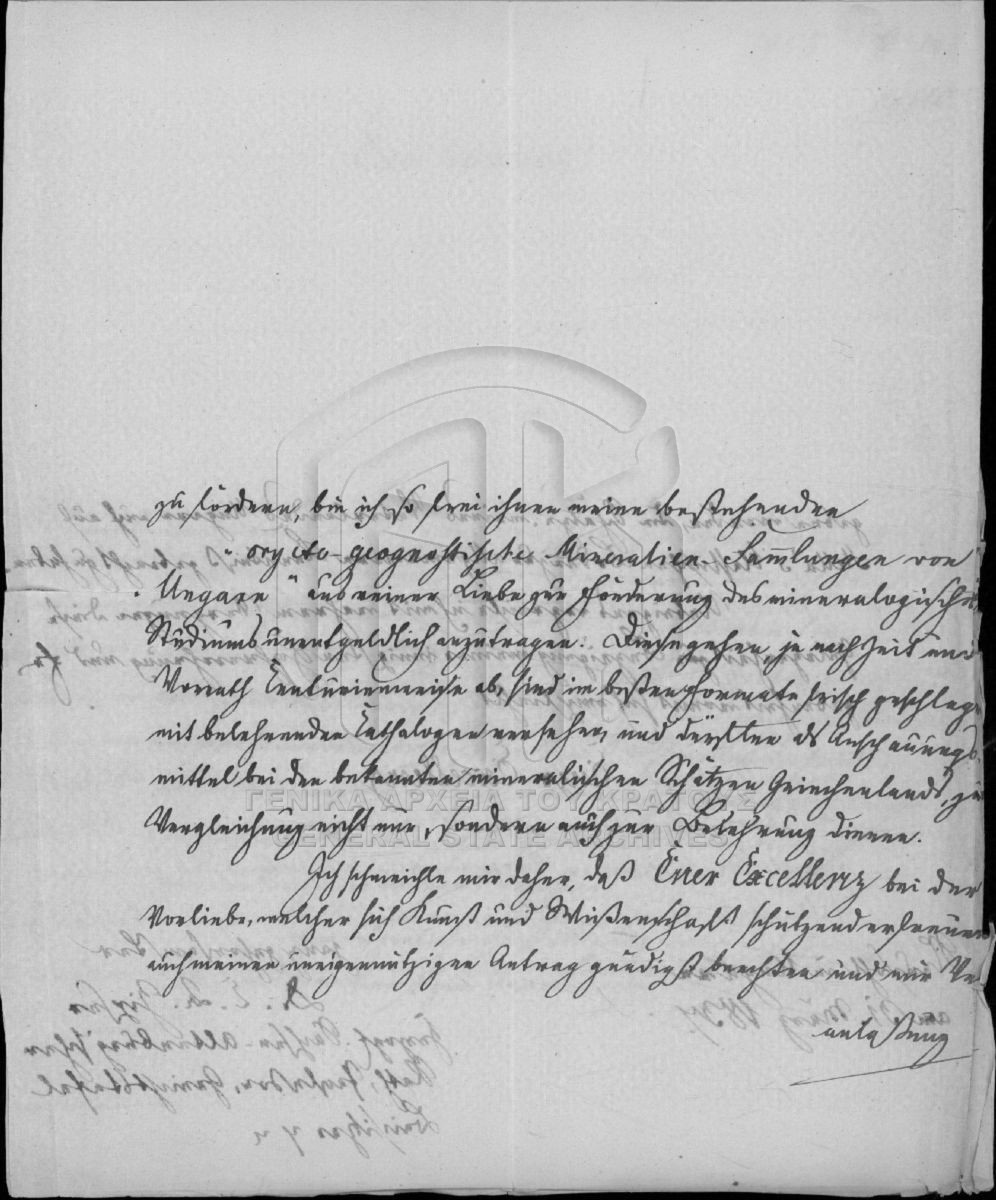 zu fördern, bin ich so frei ihnen meine bestehenden
„ orycto-geognostische Mineralien-Sam̅lungen von
„ Ungarn " aus reiner Liebe zur Förderung des mineralogischen
Studiums unentgeldlich anzutragen. Diese gehen, je nach Zeit und
Vorrath Centurienweise ab, sind im besten Formate frisch geschlagen
mit belehrenden Cathalogen versehen, und dürften als Anschauungs-
mittel bei den bekannten mineralischen Schätzen Griechenlands, zur
Vergleichung nicht nur, sondern auch zur Belehrung dienen.
Ich schmeichle mir daher, daß Euer Excellenz bei der
Vorliebe, welcher sich Kunst und Wißenschaft schützend erfreuen
auch meinen uneigennützigen Antrag gnädigst beachten und mir Ver-
anlaßung
ΓΕΝΙΚΑ ΑΡΧΕΙΑ ΤΟΥ ΚΡΑΤΟΥΣ
GENERAL STATE ARCHIVES